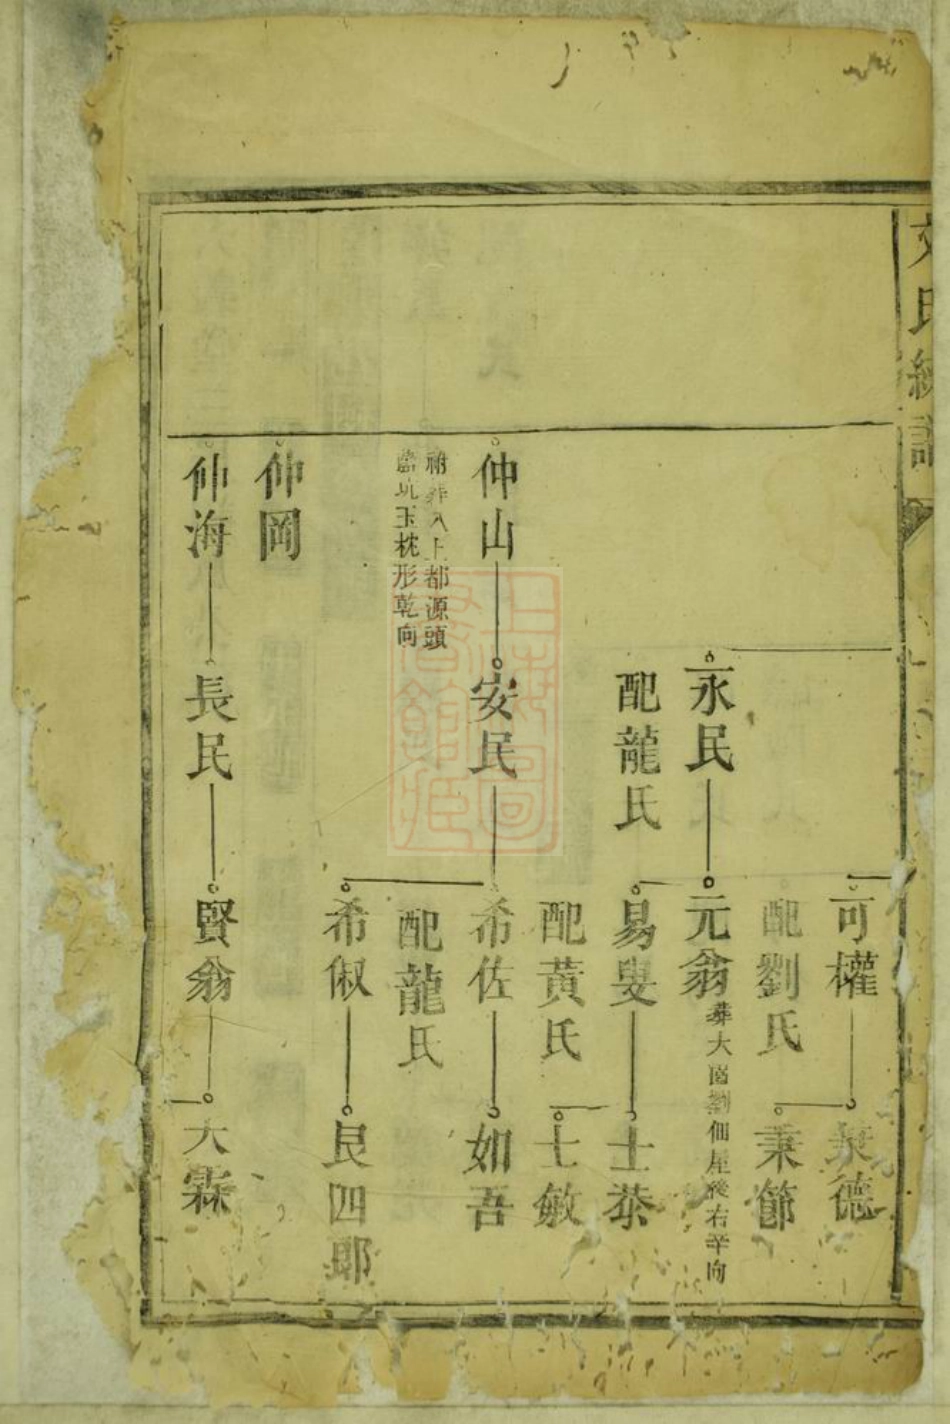 氏
仲山
祔葬八上都源頭
坑玉枕形乾向
仲岡
仲海
永民
配龍氏
安民
長民
可權
配劉氏
元翁
葬大園劉佃屋後右辛向
易叟
配黃氏
希佐
配龍氏
希俶
賢翁
秉德
秉節
士恭
士敏
如吾
良四郎
大霖
上海圖書館藏